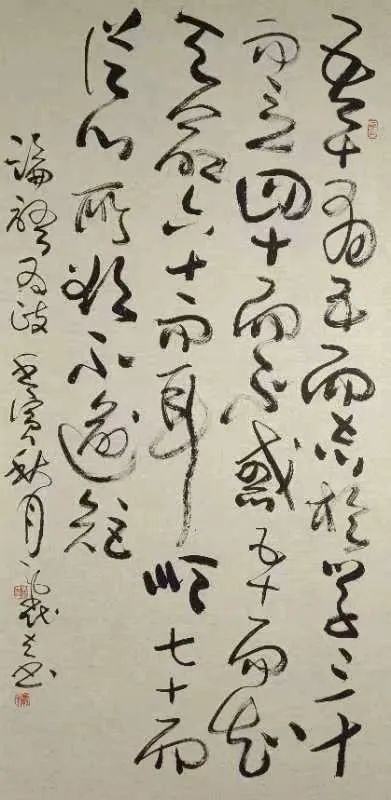 吾十有五而志於学三十
而立四十而不惑五十而知
天命六十而耳順七十而
從心所欲不逾矩
論語为政 壬寅秋月 書